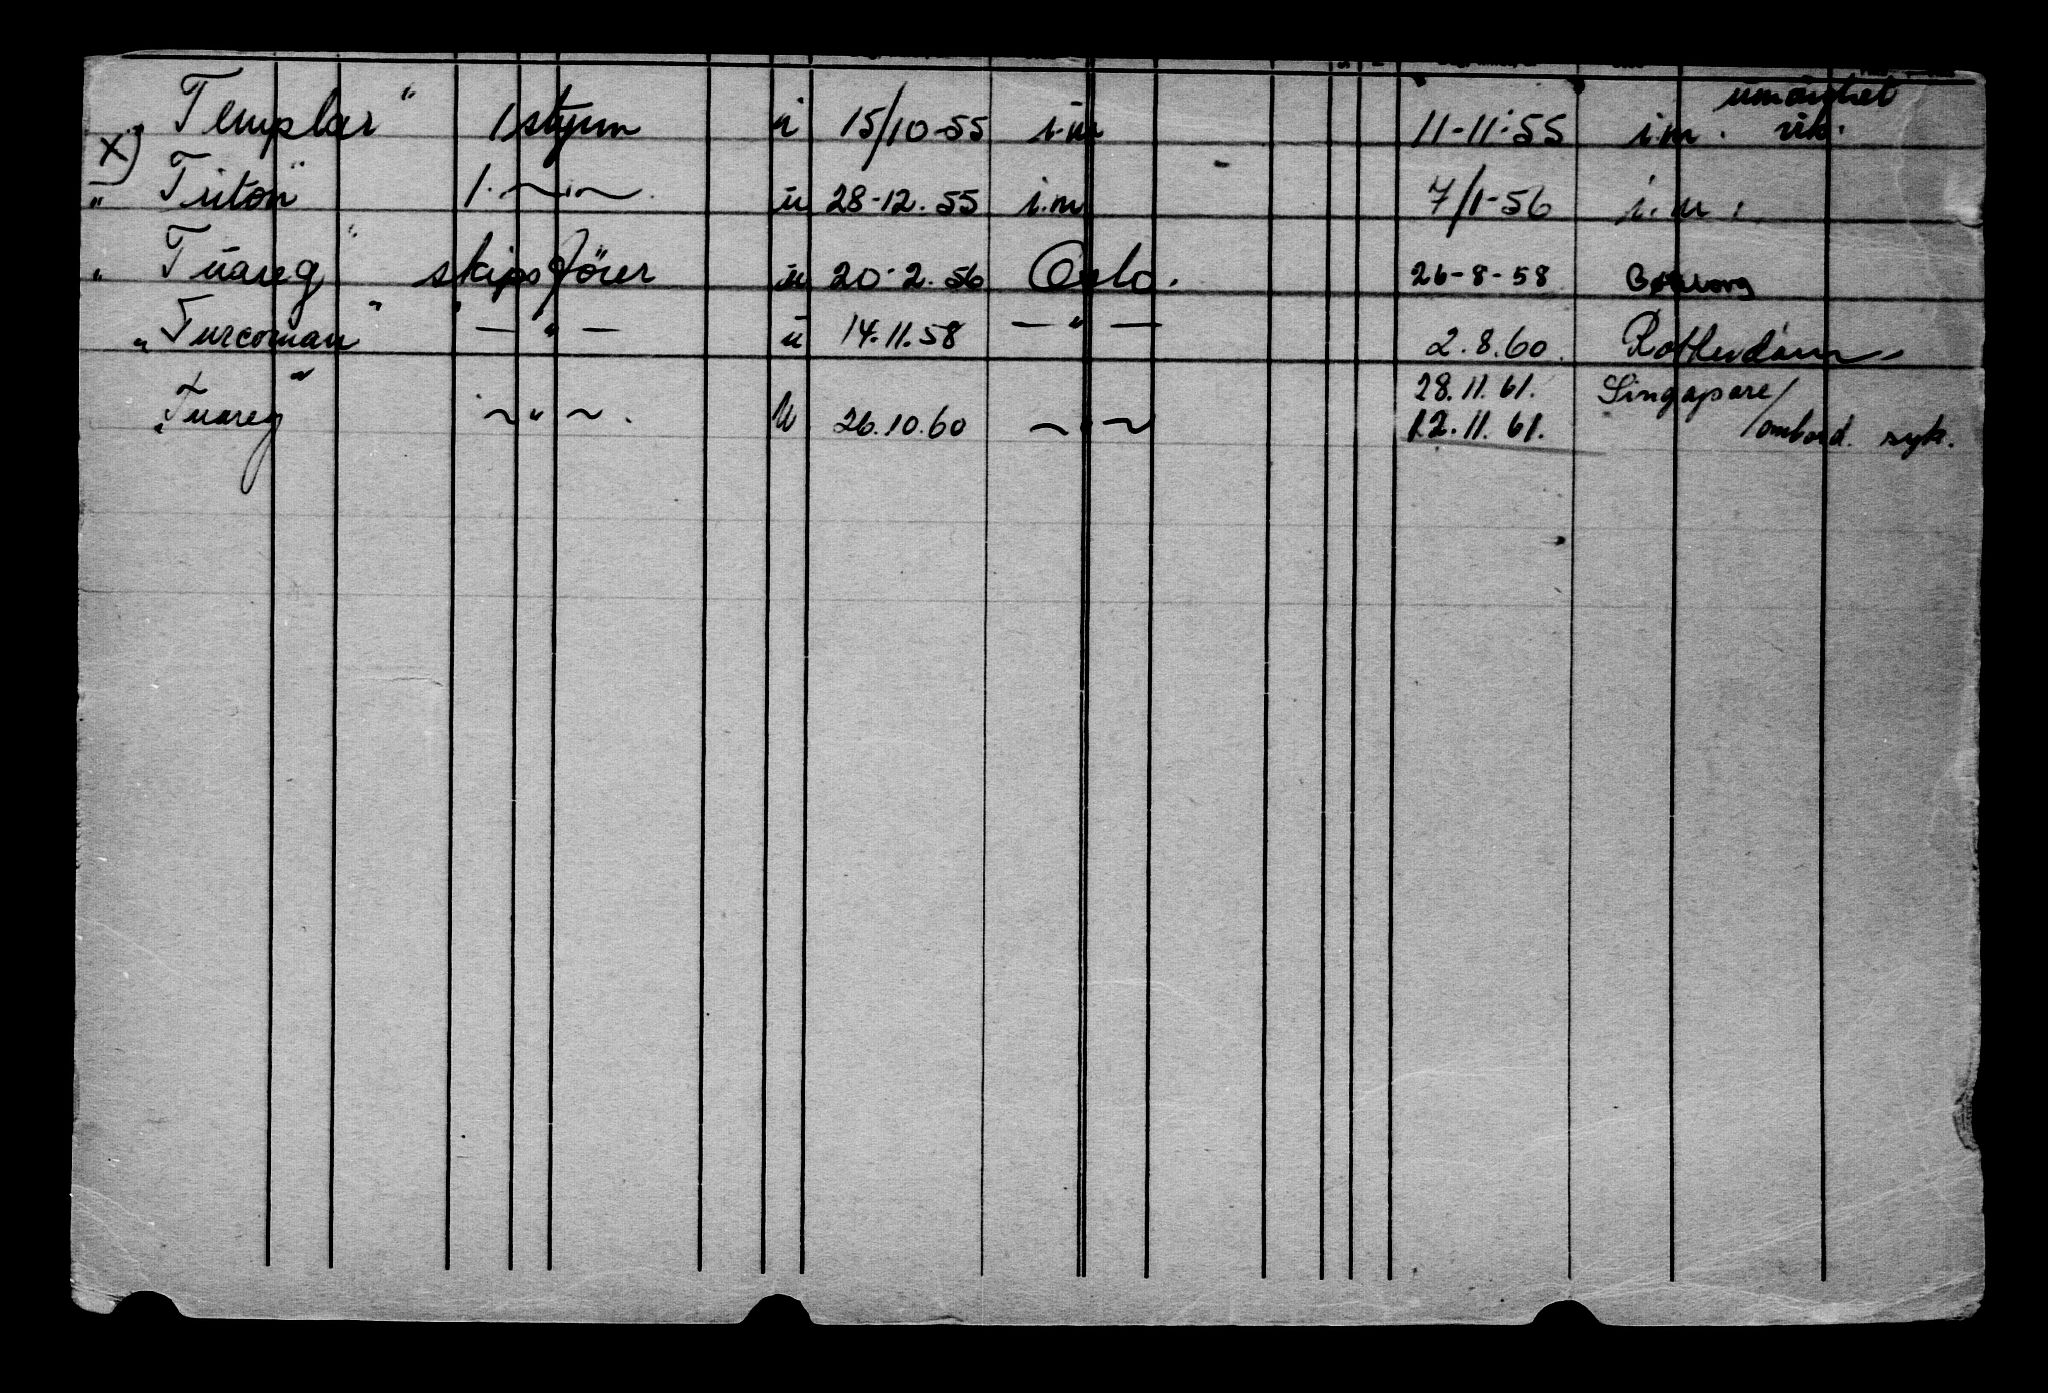 „Templar" 1 styrm u 15/10-55 i.m 11-11-55 i.m. vik.
x)
„Triton" 1. ~"~ u 28-12.55 i.m 7/1-56 i.m.
„Tuareg" skipsfører u 20-2.56 Oslo. 26-8-58 Gøteborg
„Turcoman" — " — u 14.11.58 — " — 2.8.60. Rotterdam
28.11.61. Singapore/
„Tuareg" ~ " ~. u 26.10.60 ~ " ~ 12.11.61. /ombord. syk.